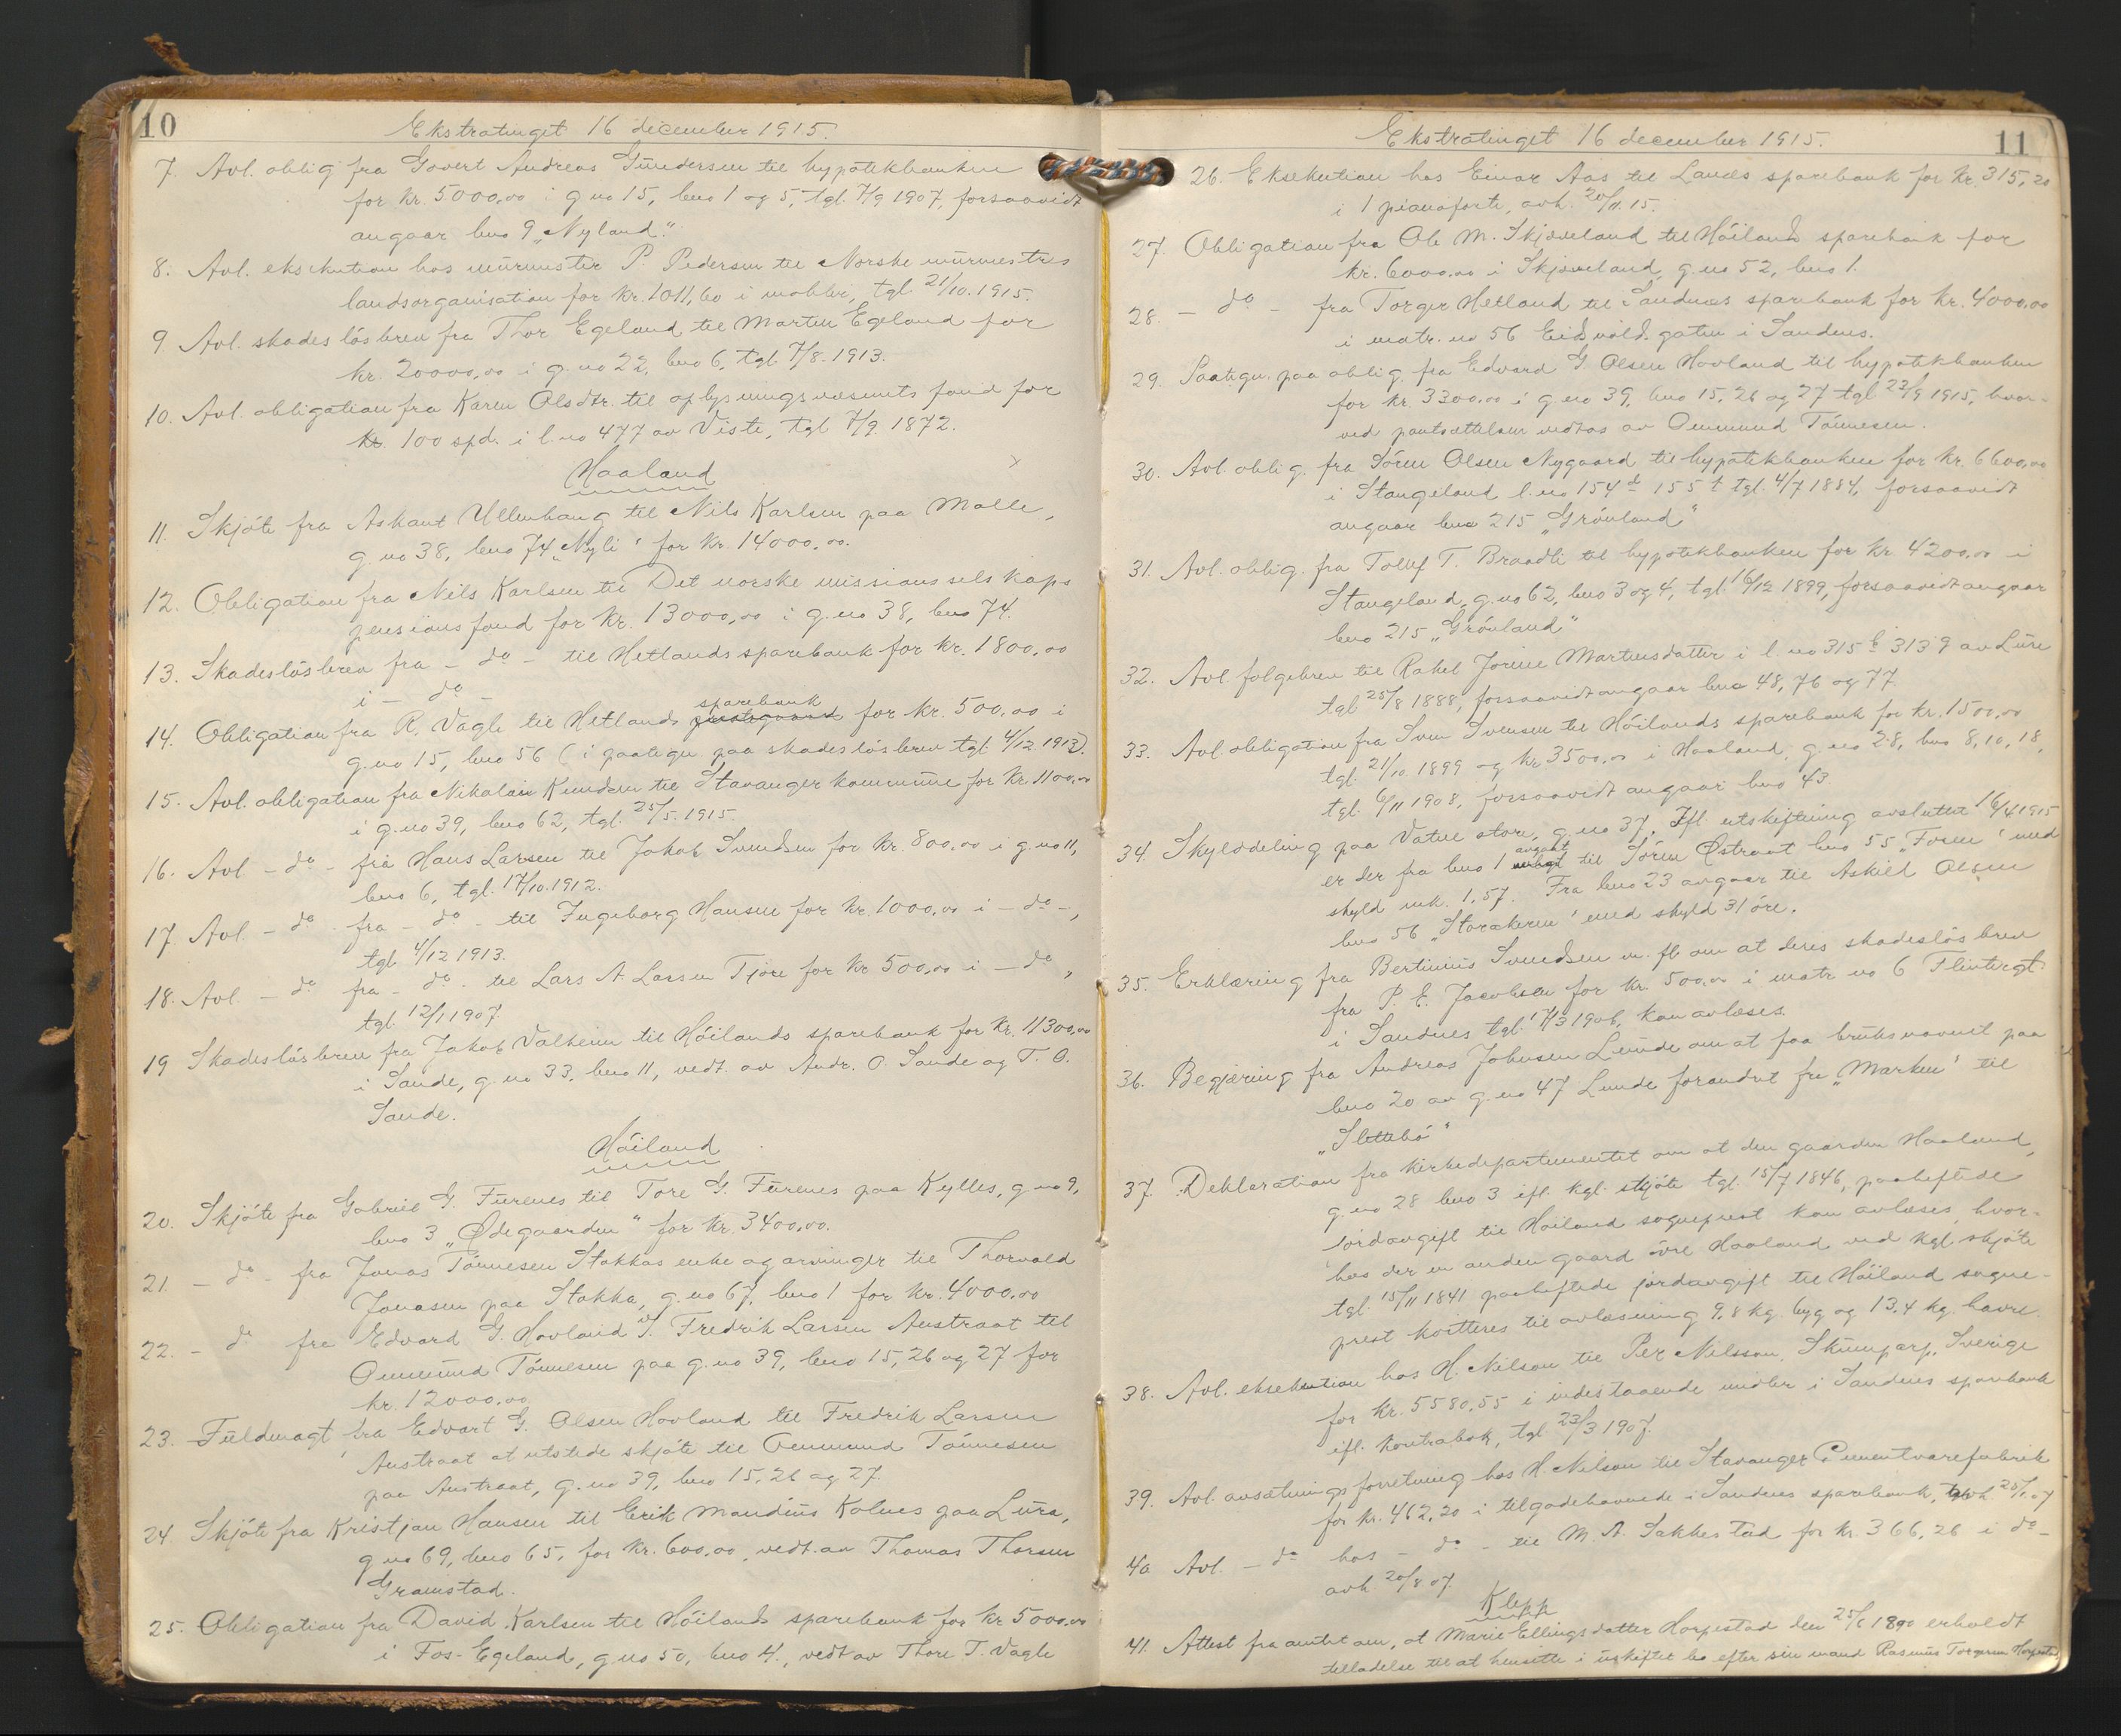 10
Ekstratinget 16 december 1915.
7. Avl. oblig fra Govert Andreas Gundersen til hypotekbanken
for kr. 5000,00 i g.no 15, bno 1 og 5, tgl. 7/9 1907, forsaavidt
angaar bno 9 „Nyland".
8. Avl. eksekution hos murmester P. Pedersen til Norske murmestres
landsorganisation for kr. 1011,60 i møbler, tgl. 21/10. 1915.
9. Avl. skadesløsbrev fra Thor Egeland til Martin Egeland for
kr. 20000,00 i g.no 22, bno 6, tgl. 7/8. 1913.
10. Avl. obligation fra Karen Olsdtr. til oplysningsvæsenets fond for
kr. 100 spd. i l.no 477 av Viste, tgl. 7/9 1872.
Haaland
11. Skjøte fra Askaut Ullenhaug til Nils Karlsen paa Malle,
g.no 38, bno 74 „Nyli" for kr. 14000,00.
12. Obligation fra Nils Karlsen til Det norske missionsselskaps
pensionsfond for kr. 13000,00 i g.no 38, bno 74.
13. Skadesløsbrev fra - do - til Hetlands sparebank for kr. 1800,00
i - do -
14. Obligation fra R. Vagle til Hetlands sparebank for kr. 500,00 i
g.no 15, bno 56 (i paategn. paa skadesløsbrev tgl. 4/12 1913).
15. Avl. obligation fra Nikolai Knudsen til Stavanger kommune for kr. 1100,00
i g.no 39, bno 62, tgl. 25/5. 1915.
16. Avl. - do - fra Hans Larsen til Jakob Svendsen for kr. 800,00 i g.no 11,
bno 6, tgl. 17/10. 1912.
17. Avl. - do - fra - do - til Ingeborg Hansen for kr. 1000,00 i - do -,
tgl. 4/12 1913.
18. Avl. - do fra - do - til Lars A. Larsen Tjore for kr. 500,00 i - do,
tgl. 12/1 1907.
19 Skadesløsbrev fra Jakob Valheim til Høilands sparebank for kr. 11300,00
i Sande, g.no 33, bno 11, vedt. av Andr. O. Sande og T. O.
Sande.
Høiland
20. Skjøte fra Gabriel G. Furenes til Tore G. Furenes paa Kylles, g.no 9,
bno 3 „Ødegaarden" for kr. 3400,00.
21. - do - fra Jonas Tønnesen Stokkas enke og arvinger til Thorvald
Jonasen paa Stokka, g.no 67, bno 1 for kr. 4000,00
22. - do fra Edvard G. Hovland v. Fredrik Larsen Austraat til
Ommund Tønnesen paa g.no 39, bno 15, 26 og 27 for
kr. 12000,00
23. Fuldmagt fra Edvart G. Olsen Hovland til Fredrik Larsen
Austraat at utstede skjøte til Ommund Tønnesen
paa Austraat, g.no 39, bno 15, 26 og 27.
24 Skjøte fra Kristjan Hansen til Erik Mandius Kolnes paa Lura,
g.no 69, bno 65, for kr. 600,00, vedt. av Thomas Thorsen
Gramstad.
25. Obligation fra David Karlsen til Høilands sparebank for kr. 5000,00
i Fos-Egeland, g.no 50, bno 4., vedt av Thore T. Vagle
11
Ekstratinget 16 december 1915.
26. Eksekution hos Einar Aas til Lands sparebank for kr. 315,20
i 1 pianoforte, avh. 20/11. 15.
27. Obligation fra Ole M. Skjæveland til Høilands sparebank for
kr. 6000,00 i Skjæveland, g.no 52, bno 1.
28. - do - fra Torger Hetland til Sandnes sparebank for kr. 4000,00
i matr. no 56 Eidsvoldsgaten i Sandnes.
29. Paategn. paa oblig. fra Edvard G. Olsen Hovland til hypotekbanken
for kr. 3300,00 i g.no 39, bno 15, 26 og 27 tgl. 23/9 1915, hvor-
ved pantsættelsen vedtas av Ommund Tønnesen.
30. Avl. oblig. fra Søren Olsen Nygaard til hypotekbanken for kr. 6600,00
i Stangeland l.no 154 d 155 t tgl. 4/7 1884, forsaavidt
angaar bno 215 „Grønland"
31. Avl. oblig. fra Tollef T. Braadli til hypotekbanken for kr. 4200,00 i
Stangeland, g.no 62, bno 3 og 4, tgl. 16/12 1899, forsaavidt angaar
bno 215 „Grønland"
32. Avl. følgebrev til Rakel Jorine Martinsdatter i l.no 315 b 313 g av Lure
tgl. 25/8 1888, forsaavidt angaar bno 48, 76 og 77.
33. Avl. obligation fra Sven Svensen til Høilands sparebank for kr. 1500,00
tgl. 21/10 1899 og kr. 3500,00 i Haaland, g.no 28, bno 8, 10, 18,
tgl. 6/11 1908, forsaavidt angaar bno 43.
34. Skylddeling paa Vatne store, g.no 37. Ifl. utskiftning avsluttet 16/4 1915
er der fra bno 1 avgaat til Søren Østraat bno 55 „Foren" med
skyld mk. 1.57. Fra bno 23 avgaar til Askild Olsen
bno 56 „Storakeren" med skyld 31 øre.
35. Erklæring fra Bertinius Svendsen m. fl. om at deres skadesløsbrev
fra P. E. Jacobsen for kr. 500,00 i matr no 6 Flintergt.
i Sandnes tgl. 17/3 1906, kan avlæses.
36. Begjæring fra Andreas Johnsen Lunde om at faa bruksnavnet paa
bno 20 av g.no 47 Lunde forandret fra „Marken" til
„Slettebø"
37. Deklaration fra kirkedepartementet om at den gaarden Haaland,
g.no 28 bno 3 ifl. kgl. skjøte tgl. 15/7 1846, paaheftede
jordavgift til Høiland sogneprest kan avløses, hvor-
hos der en anden gaard øvre Haaland ved kgl. skjøte
tgl. 15/11 1841 paaheftede jordavgift til Høiland sogne-
prest kvitteres til avløsning 9,8 kg. byg og 13,4 kg. havre.
38. Avl. eksekution hos H. Nilson til Per Nilsson, Skumparp, Sverige
for kr. 5580,55 i indestaaende midler i Sandnes sparebank
ifl. kontrabok, tgl. 23/3 1907.
39. Avl. avsætningsforretning hos H. Nilson til Stavanger Cementvarefabrik
for kr. 462,20 i tilgodehavende i Sandnes sparebank,
40 Avl. - do hos - do - til M. A. Sakkestad for kr. 366,26 i do -
avh. 20/8 07.
Klepp
41. Attest fra amtet om, at Marie Ellingsdatter Horpestad den 25/6 1890 erholdt
tilladelse til at hensitte i uskiftet bo efter sin mand Rasmus Torgersen Horpestad